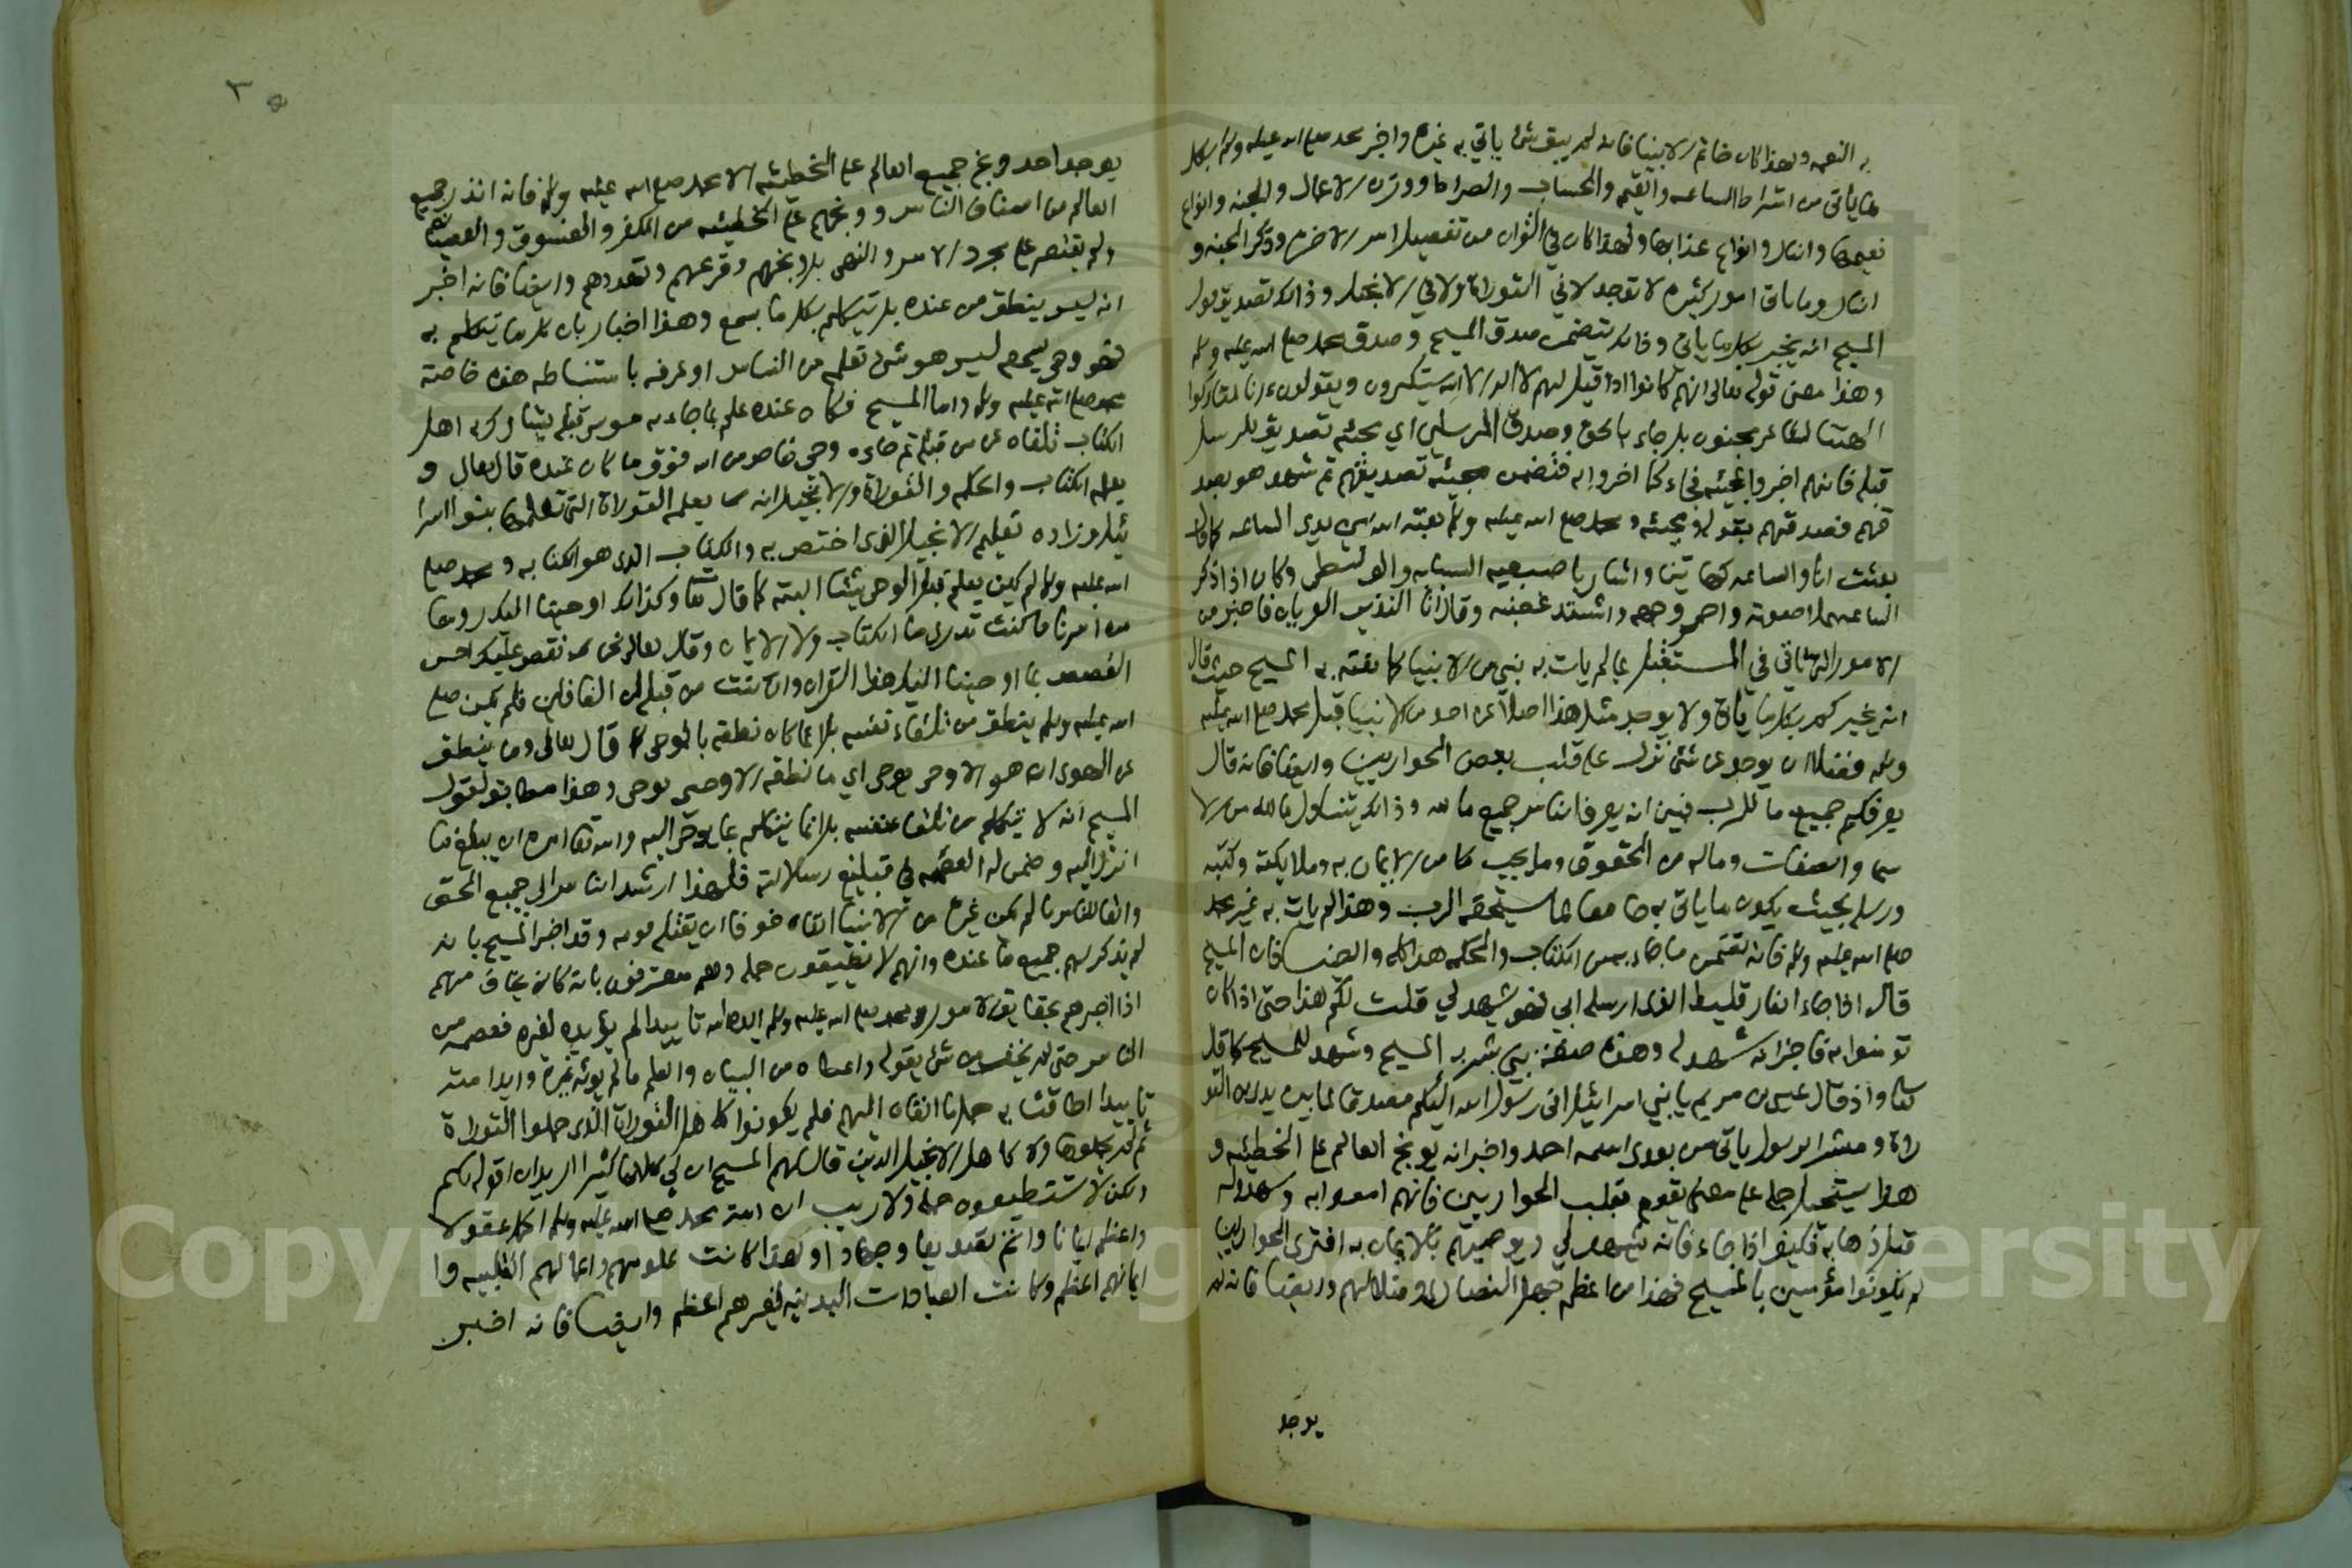 به النعمه ولهذا كان خاتم الانبيا فانه لم يبق شئ ياتي به غيره واخبر محمد صلع الله عليه ولم بكل
ما ياتى من اشراط الساعه والقيمه والحساب والصراط ووزن الاعمال والجنه وانواع
نعيمها والنار وانواع عذابها ولهذا كان في القران من تفصيل امر الاخره وذكر الجنه و
النار وما ياتى امور كثيره لا توجد لا في التوراة ولا في الانجيل وذالك تصديق قول
المسيح انه يخبر بكل ما ياتى وذلك يتضمن صدق المسيح وصدق محمد صلع الله عليه ولم
وهذا معنى قوله تعالى انهم كانوا اذا قيل لهم لا اله الا الله يستكبرون ويقولون ءانا لتاركوا
الهتنا لشاعر مجنون بل جاء بالحق وصدق المرسلين اي مجيئه تصديق للرسل
قبله فانهم اخبروا بمجيئه فجاء كما اخبروا به فتضمن مجيئه تصديقهم ثم شهد هو بصد
قهم فصدقهم بقوله ومجيئه ومحمد صلع الله عليه ولم بعثه الله بين يدي الساعه كما قال
بعثت انا والساعه كهاتين واشار باصبعيه السبابه والوسطى وكان اذا ذكر
الساعه علا صوته واحمر وجهه واشتد غضبه وقال انا النذير العريان فاخبر من
الامور التى تاتى في المستقبل بما لم يات به نبي من الانبيا كما نعته به المسيح حيث قال
انه يخبركم بكل ما ياتى ولا يوجد مثل هذا اصلا عن احد من الانبيا قبل محمد صلع الله عليه
ولم فضلا ان يوجد عن شئ نزل على قلب بعض الحواريين وايضا فانه قال
يعرفكم جميع ما للرب فبين انه يعرف الناس جميع ما لله وذالك يتناول ما لله من الا
سما والصفات وماله من الحقوق وما يجب كما من الايمان به وملايكته وكتبه
ورسله بحيث يكون ما ياتى به جامعا لما يستحقه الرب وهذا لم يات به غير محمد
صلع الله عليه ولم فانه تضمن ما جاء به من الكتاب والحكمه هذا كله وايضا فان المسيح
قال اذا جاء الفارقليط الذى ارسله ابي فهو يشهد لي قلت لكم هذا حتى اذا كان
تومنوا به فاخبر انه شهد له وهذه صفة نبي بشر به المسيح وشهد للمسيح كما قال
تعا واذ قال عيسى بن مريم يا بني اسرائيل انى رسول الله اليكم مصدقا لما بين يدي من التو
راة ومبشرا برسول ياتى من بعدى اسمه احمد واخبر انه يوبخ العالم على الخطيئه و
هذا يستحيل حمله على معنى يقوم بقلب الحواريين فانهم امنوا به وشهدوا له
قبل ذهابه فكيف اذا جاء فانه يشهد لي ويوصيهم بالايمان به افترى الحواريين
لم يكونوا مؤمنين بالمسيح فهذا من اعظم جهل النصارى وضلالهم وايضا فانه لم
يوجد
يوجد احد وبخ جميع العالم على الخطيئه الا محمد صلع الله عليه ولم فانه انذر جميع
العالم من اصناف الناس ووبخهم على الخطيئه من الكفر والفسوق والعصيان
ولم يقتصر على مجرد الامر والنهي بل وبخهم وقرعهم وتهددهم وايضا فانه اخبر
انه ليس ينطق من عنده بل يتكلم بكل ما يسمع وهذا اخبار بان كل ما يتكلم به
فهو وحي يسمعه ليس هو شئ تعلمه من الناس او عرفه باستنباطه هذه خاصة
محمد صلع الله عليه ولم واما المسيح فكان عنده علم بما جاء به موسى قبله يشاركه اهل
الكتاب تلقاه عن من قبله ثم جاءه وحي خاص من الله فوق ما كان عنده قال تعالى و
يعلمه الكتاب والحكمه والتوراة والانجيل انه يعلمه التوراة التى تعلمها بنوا اسرا
ئيل وزاده تعليم الانجيل الذى اختص به والكتاب الذى هو الكتابه ومحمد صلع
الله عليه ولم لم يكن يعلم قبل الوحى شيئا البته كما قال تعا وكذالك اوحينا اليك روحا
من امرنا ما كنت تدرى ما الكتاب ولا الايمان وقال تعالى نحن نقص عليك احسن
القصص بما اوحينا اليك هذا القران وان كنت من قبله لمن الغافلين فلم يكن صلع
الله عليه ولم ينطق من تلقاء نفسه بل انما كان نطقه بالوحى قال تعالى وما ينطق
عن الهوى ان هو الا وحى يوحى اي ما نطقه الا وحى يوحى وهذا مطابق لقول
المسيح انه لا يتكلم من تلقا نفسه بل انما يتكلم بما يوحى اليه والله تعا امره ان يبلغ ما
انزل اليه وضمن له العصمه في تبليغ رسالاته فلهذا ارشد الناس الى جميع الحق
والقا للناس ما لم يمكن غيره من الانبيا القاه خوفا ان يقتله قومه وقد اخبر المسيح بانه
لم يذكر لهم جميع ما عنده وانهم لا يطيقون حمله وهم معترفون بانه كان يخاف منهم
اذا اخبرهم بحقايق الامور ومحمد صلع الله عليه ولم ايده الله تاييدا لم يؤيده لغيره فعصمه من
الناس حتى لم يخف من شئ يقوله واعطاه من البيان والعلم ما لم يؤته غيره وايد امته
تاييدا اطاقت به حمل ما القاه اليهم فلم يكونوا كاهل التوراة الذى حملوا التوراة
ثم لم يحملوها ولا كاهل الانجيل الذين قال لهم المسيح ان لي كلاما كثيرا اريد ان اقوله لكم
ولكن لا تستطيعون حمله ولا ريب ان امة محمد صلع الله عليه ولم اكمل عقولا
واعظم ايمانا واتم تصديقا وجهادا ولهذا كانت علومهم واعمالهم القلبيه وا
يمانهم اعظم وكانت العبادات البدنيه لغيرهم اعظم وايضا فانه اخبر